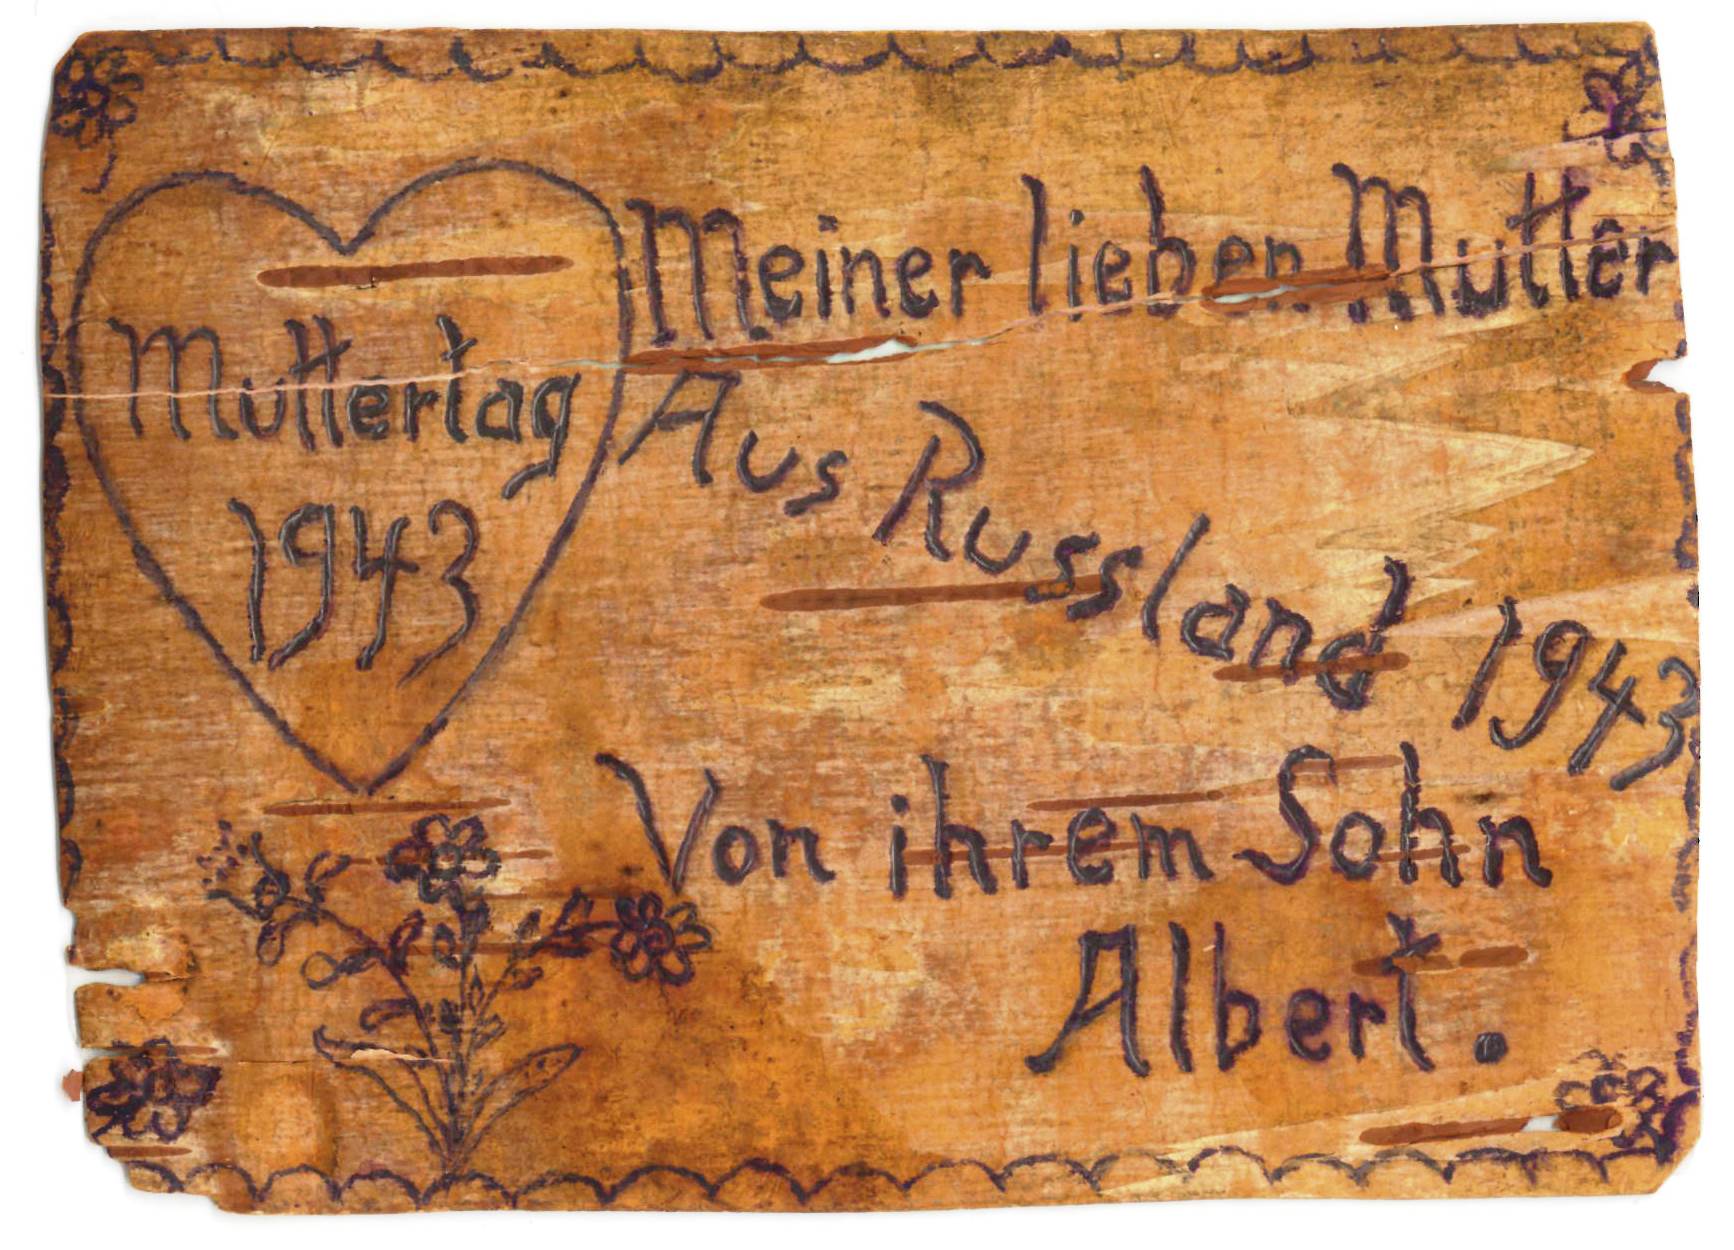 Muttertag
1943
Meiner lieben Mutter
Aus Russland 1943
Von ihrem Sohn
Albert.